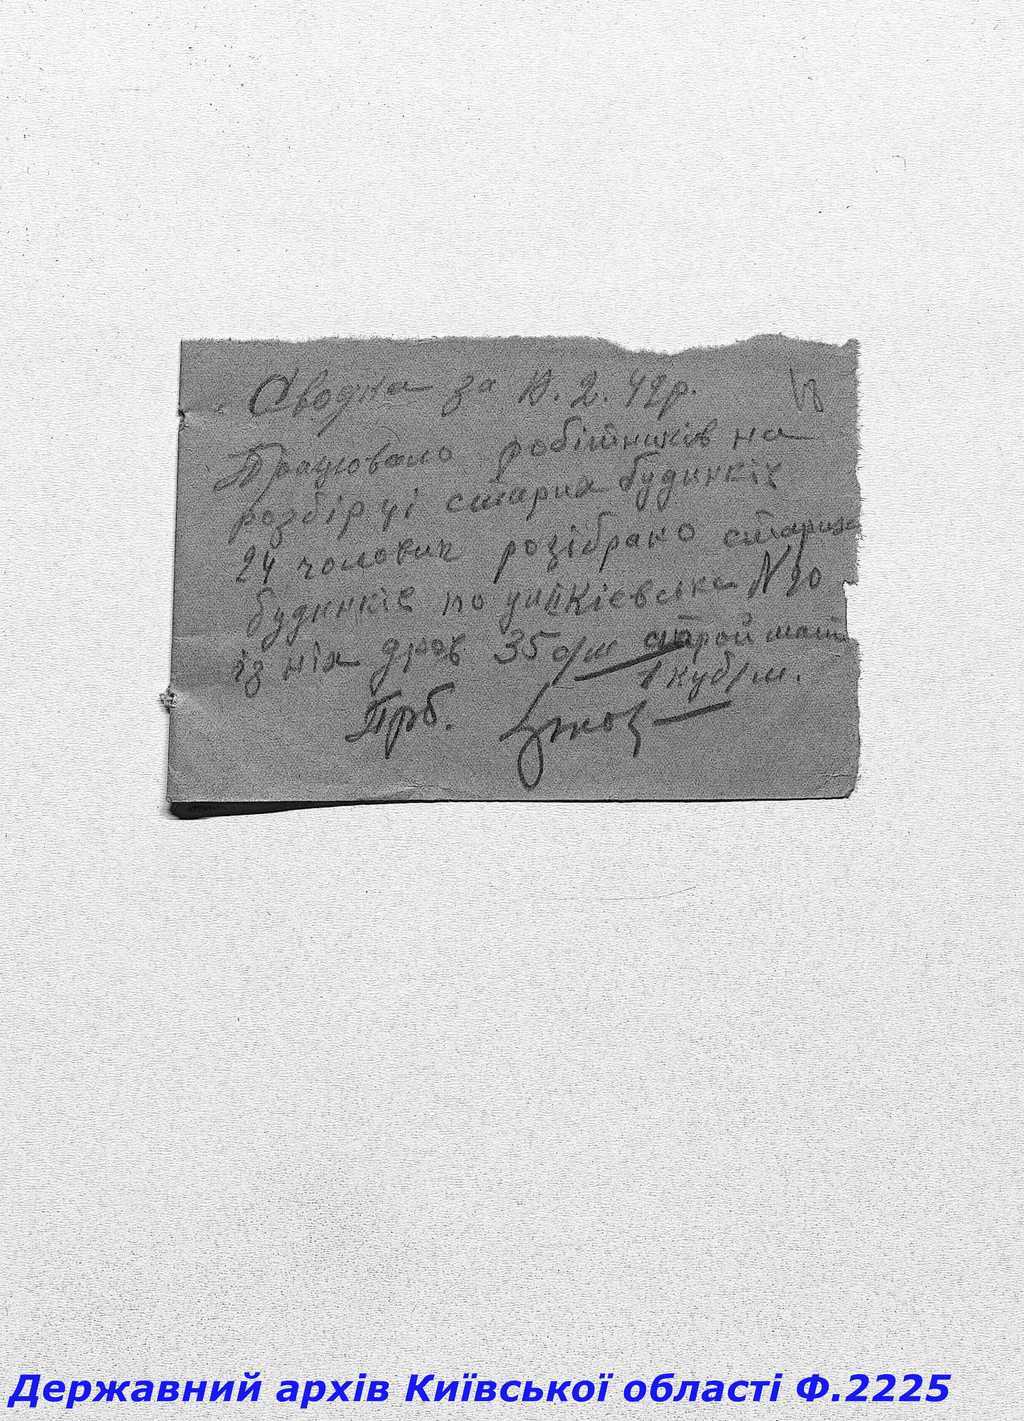 Сводка за 2.42р.
Працювало робітників на
розбірці старих будинків
24 чоловік розібрано старих
будинків по Кієвська N 20
із них дров 35 с/м строй мат
1 куб/м.
Прб.
Державний архів Київської області Ф.2225